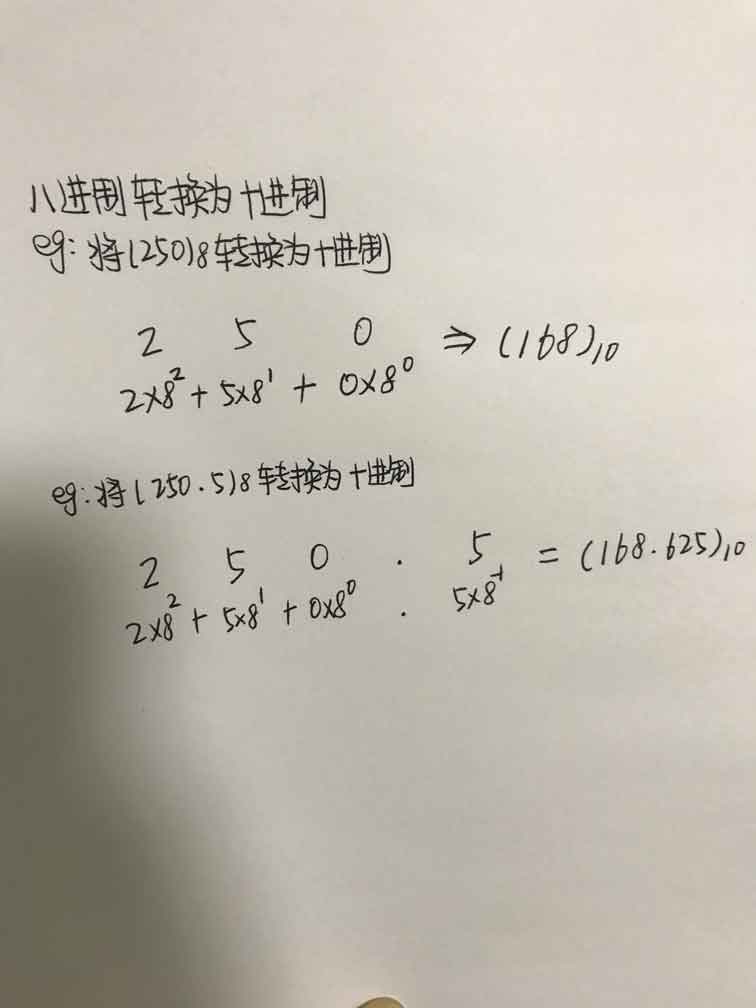 八进制转换为十进制
eg:将(250)8转换为十进制
2 5 0 ⇒ (168)10
2×8² + 5×8¹ + 0×8⁰
eg:将(250.5)8转换为十进制
2 5 0 . 5 = (168.625)10
2×8² + 5×8¹ + 0×8⁰ . 5×8⁻¹